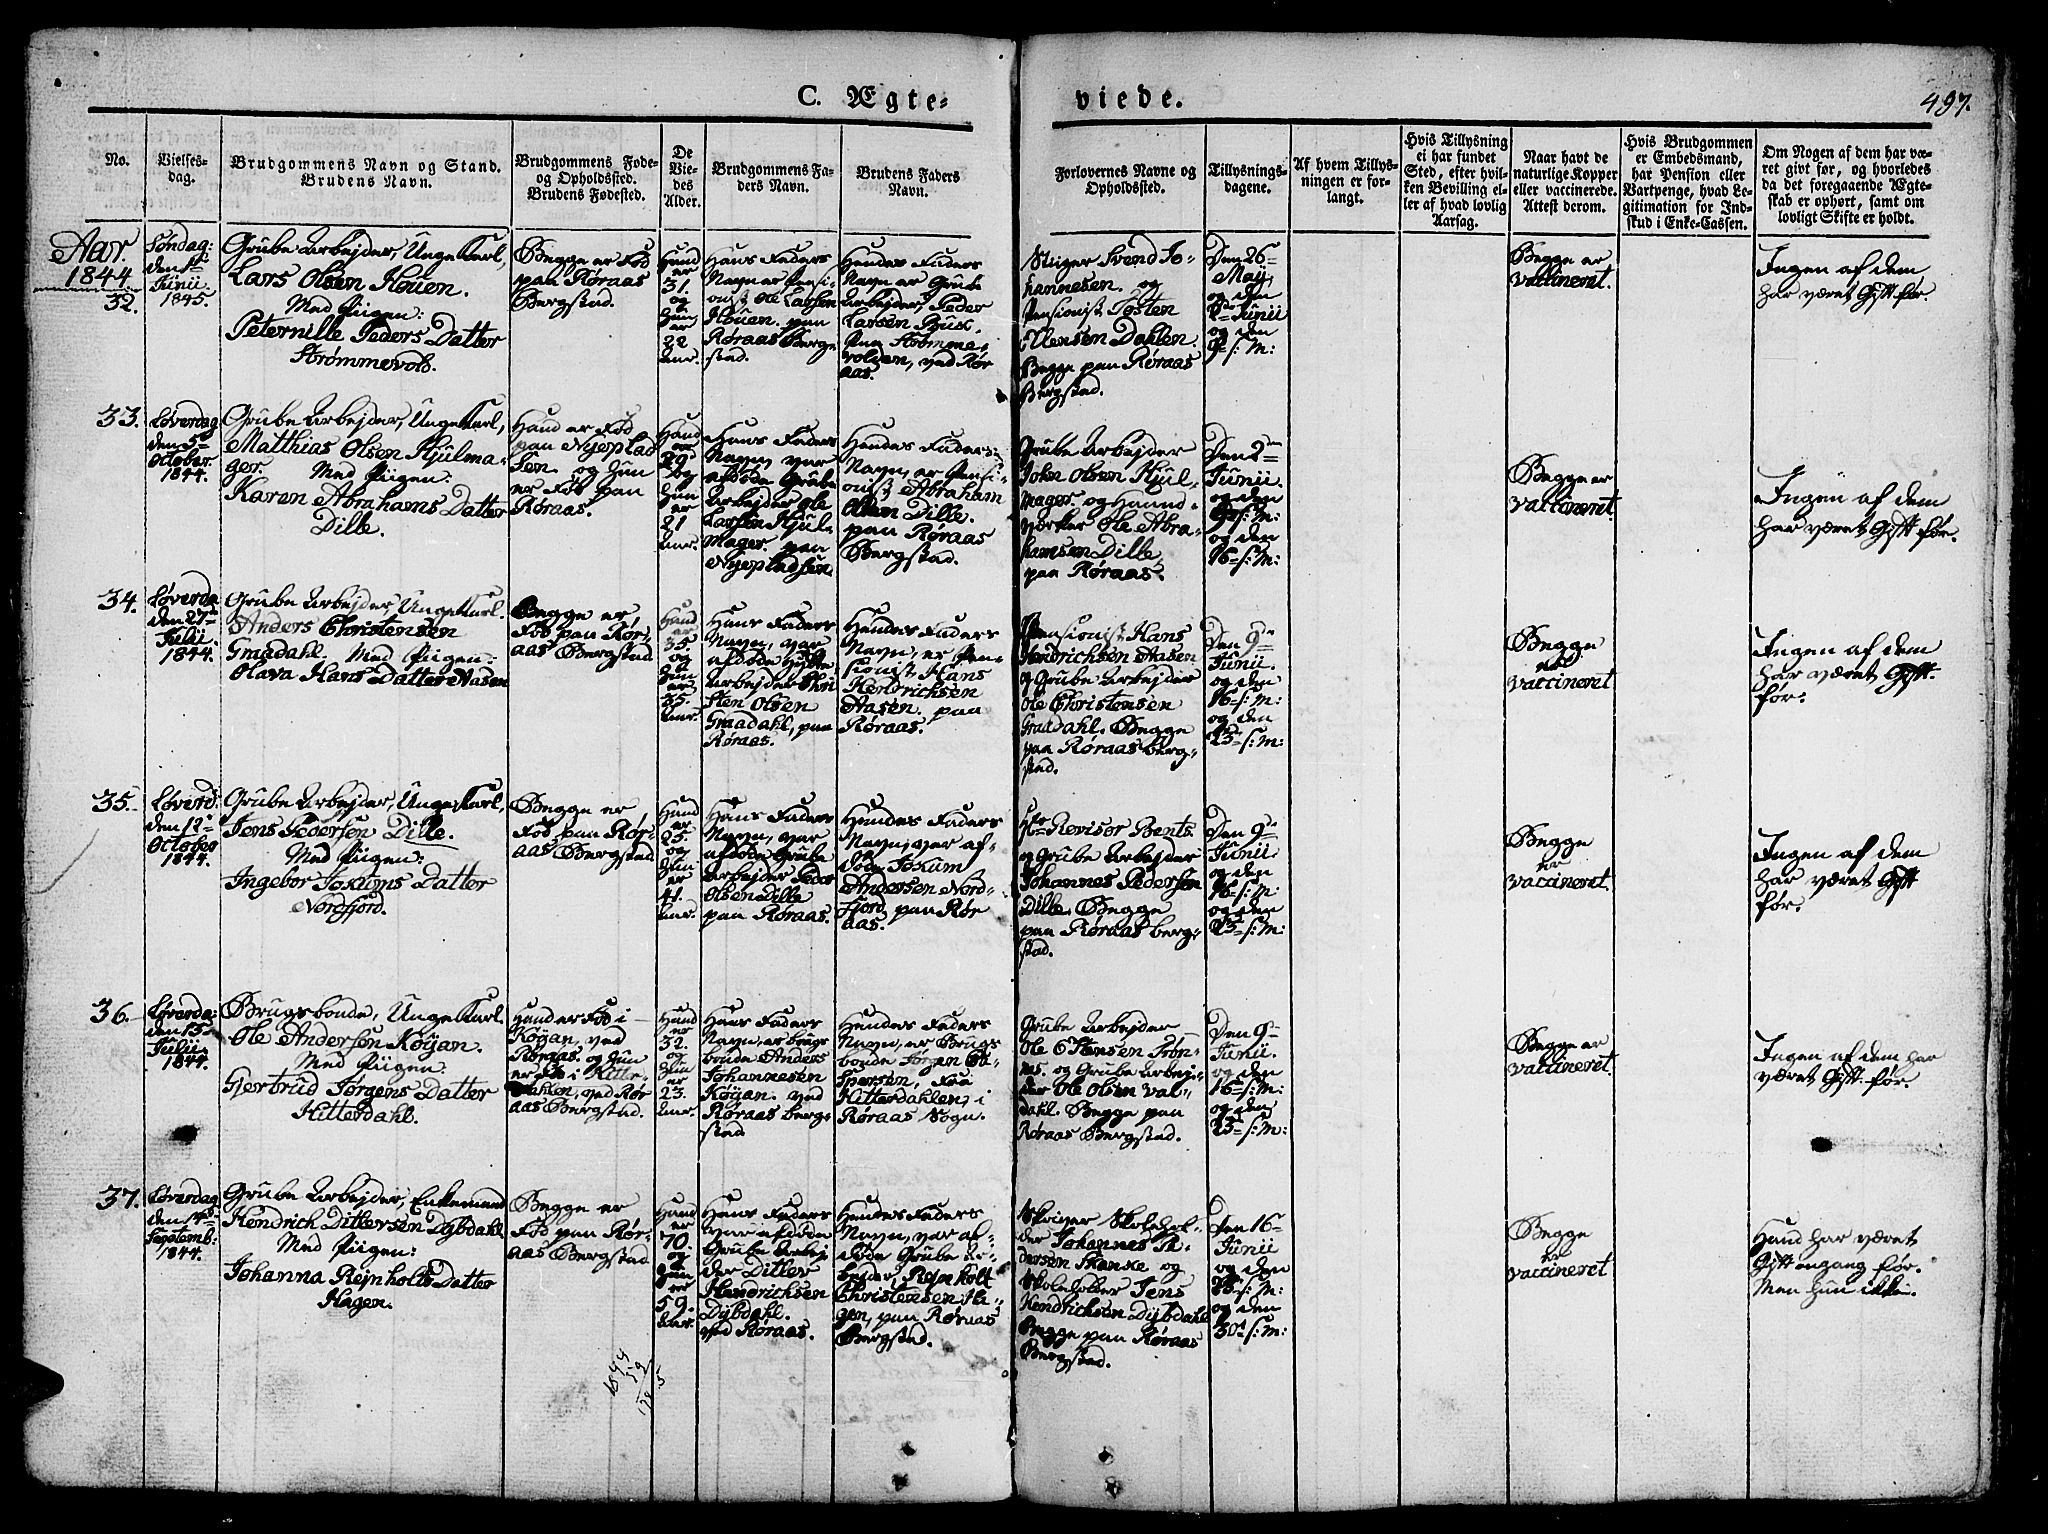 C. Ægte-
viede.
497.
No.
Vielses-
dag.
Brudgommens Navn og Stand.
Brudens Navn.
Brudgommens Føde-
og Opholdssted.
Brudens Fødested.
De
Vie-
des
Alder.
Brudgommens Fa-
ders Navn.
Brudens Faders
Navn.
Forlovernes Navne og
Opholdssted.
Tillysnings-
dagene.
Af hvem Tillys-
ningen er for-
langt.
Hvis Tillysning
ei har fundet
Sted, efter hvil-
ken Bevilling el-
ler af hvad lovlig
Aarsag.
Naar havt de
naturlige Kopper
eller vaccinerede.
Attest derom.
Hvis Brudgommen
er Embedsmand,
har Pension eller
Vartpenge, hvad Le-
gitimation for Ind-
skud i Enke-Cassen.
Om Nogen af dem har væ-
ret givt før, og hvorledes
da det foregaaende Ægte-
skab er ophørt, samt om
lovligt Skifte er holdt.
Aar.
1844
32.
Søndag:
den 1te
Junii
1845.
Grube Arbejder, Unge Karl,
Lars Olsen Houen.
Med Piigen:
Peternille Peders Datter
Strømmevold.
Begge er Fød
paa Røraas
Bergstad.
Hand
er
31.
og
Hun
er
22
Aar.
Hans Faders
Navn er Pensi-
onist Ole Larsen
Houen. paa
Røraas Bergs
stad.
Hendes Faders
Navn er Grube
Arbejder, Peder
Larsen Bux.
Paa Strømme-
volden, ved Rør
aas.
Stiger Svend Jo-
hannesen. og
Pensionist Josten
Ellensen Dahlen.
Begge paa Røraas
Bergstad.
Den 26
Maij
og den
2den Junii
og den
9de s: M:
Begge er
vaccineret.
Ingen af dem
har været Gift før.
33.
Løverdag
den 5te
October.
1844.
Grube Arbejder, Unge Karl,
Matthias Olsen Hjulma-
ger. Med Piigen:
Karen Abrahams Datter
Dille.
Hand er Fød
paa Nyeplad
sen. og Hun
er Fød paa
Røraas.
Hand
er
29
og
Hun
er
21
Aar.
Hans Faders
Navn, var
afdøde Grube
Arbejder Ole
Larsen Hjul
mager. paa
Nyepladsen
Hendes Faders
Navn, er Pensi-
onist Abraham
Olsen Dille.
paa Røraas
Bergstad.
Grube Arbejder
John Olsen Hjul-
mager og Haand
værker Ole Abra-
hamsen Dille
paa Røraas.
Den 2den
Junii.
og den
9de s: M:
og den
16 s: M:
Begge er
vaccineret.
Ingen af dem
har været Gift før.
34.
Løverda
den 27de
Julii
1844.
Grube Arbejder Unge Karl.
Anders Christensen
Graadahl. Med Piigen:
Olava Hans Datter Aasen
Begge er
Fød paa Rør-
aas Bergstad
Hand
er
35.
og
Hun
er
35.
Aar.
Hans Faders
Navn, var
afdøde Hytte
Arbejder Chri
sten Olsen
Graadahl, paa
Røraas.
Hendes Faders
Navn, er Pen-
sionist Hans
Hendrichsen
Aasen. paa
Røraas.
Pensionist Hans
Hendrichsen Aasen
og Grube Arbejder
Ole Christensen
Graadahl. Begge
paa Røraas berg-
stad.
Den 9de
Junii.
og den
16 s: M:
og den
23 s: M:
Begge
er
vaccineret
Ingen af dem
har været Gift.
før.
35.
Løverd:
den 12te
October
1844.
Grube Arbejder, Unge Karl,
Jens Pedersen Dille.
Med Piigen:
Ingebor Jokums Datter
Nordfjord.
Begge er
Fød paa Rør-
aas Bergstad
Hand
er
25.
og
Hun
er
41.
Aar.
Hans Faders
Navn, var
afdøde Grube
Arbejder Peder
Olsen Dille
paa Røraas.
Hendes Faders
Navn, var af-
døde Jokum
Andersen Nord-
fjord paa Rør
aas.
Hr Revisor Bents.
og Grube Arbejder
Johannes Pedersen
Dille. Begge
paa Røraas berg-
stad.
Den 9de
Junii.
og den
16 s: M:
og den
23 s: M:
Begge
er
vaccineret.
Ingen af dem
har været Gift
før.
36.
Løverda:
den 13de
Julii.
1844.
Brugsbonde, Unge Karl
Ole Andersen Køijan.
Med Piigen:
Gjertrud Jørgens Datter
Hitterdahl.
Hand er Fød i
Køijan, ved
Røraas. og Hun
er Fød i Hitter
dahlen, ved Rør
aas Bergstad.
Hand
er
32.
og
Hun
er
23.
Aar.
Hans Faders
Navn, er brugs
bonde Anders
Johannesen
Køijan. ved
Røraas berg-
stad
Hendes Faders
Navn, er Brugs
bonde Jørgen
Hitterdahlen, i
Røraas Sogn.
Grube Arbejder
Ole Stensen Trøn-
nes. og Grube Arbej-
der Ole Olsen Val-
dahl. Begge paa
Røraas Bergstad.
Den 9de
Junii.
og den
16 s: M:
og den
23 s: M:
Begge er
vaccineret.
Ingen af dem har
været Gift. før.
37.
Løverdag
den 14de
Septemb:
1844.
Grube Arbejder, Enkemand
Hendrich Ditlevsen Dybdahl.
Med Piigen:
Johanna Rejnholts Datter
Hagen.
Begge er
Fød paa Rør-
aas Bergstad
Hand
er
70.
og
Hun
er
59.
Aar.
Hans Faders
var afdøde
Grube Arbej
der Ditlev
Hendrichsen
Dybdahl.
ved Røraas.
Hendes Faders
Navn, var af-
døde Grube Ar-
bejder, Rejnholt
Christensen Ha-
gen, paa Røraas
Bergstad.
Kirkesanger Skolehol-
der Johannes Pe-
dersen Skanke og
Skoleholder Jens
Hendrichsen Dybdahl
Begge paa Røraas
Bergstad.
Den 16
Junii
og den
23 s: M:
og den
30 s: M:
Begge
er
vaccineret
Hand har været
Gift engang før.
Men hun ikke.
1844
59
1785